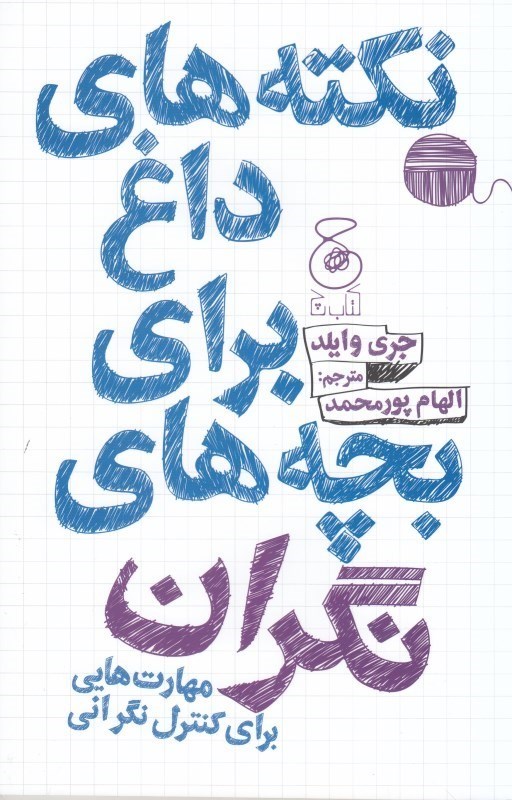 نکته‌های
داغ
برای
بچه‌های
نگران
کتاب چ
جری وایلد
مترجم:
الهام پورمحمد
مهارت‌هایی
برای کنترل نگرانی